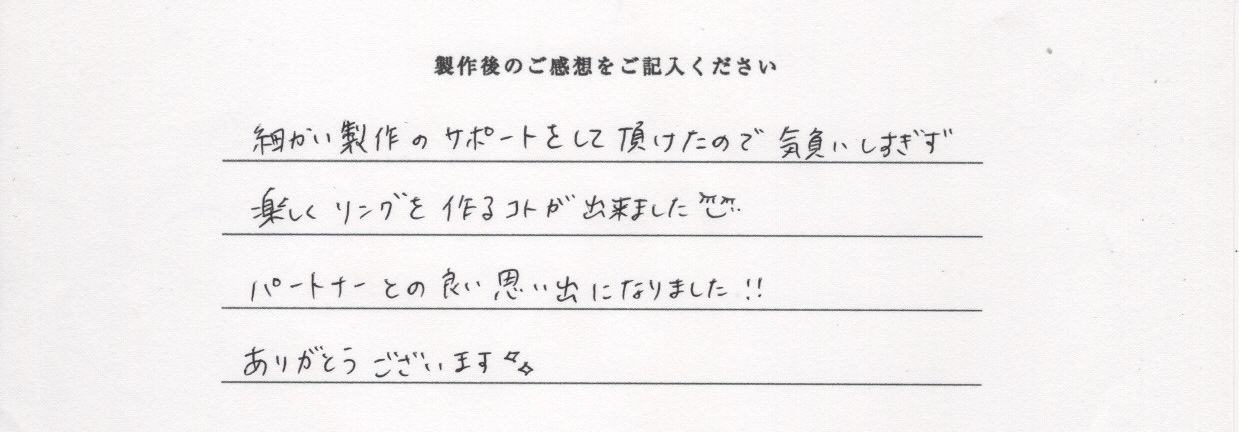 製作後のご感想をご記入ください
細かい製作のサポートをして頂けたので気負いしすぎず
楽しくリングを作るコトが出来ました
パートナーとの良い思い出になりました!!
ありがとうございます